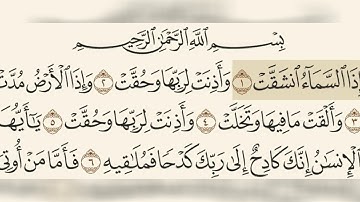 بِسْمِ اللَّهِ الرَّحْمَٰنِ الرَّحِيمِ
إِذَا السَّمَاءُ انشَقَّتْ ١ وَأَذِنَتْ لِرَبِّهَا وَحُقَّتْ ٢ وَإِذَا الْأَرْضُ مُدَّتْ
٣ وَأَلْقَتْ مَا فِيهَا وَتَخَلَّتْ ٤ وَأَذِنَتْ لِرَبِّهَا وَحُقَّتْ ٥ يَا أَيُّهَا
الْإِنسَانُ إِنَّكَ كَادِحٌ إِلَىٰ رَبِّكَ كَدْحًا فَمُلَاقِيهِ ٦ فَأَمَّا مَنْ أُوتِيَ